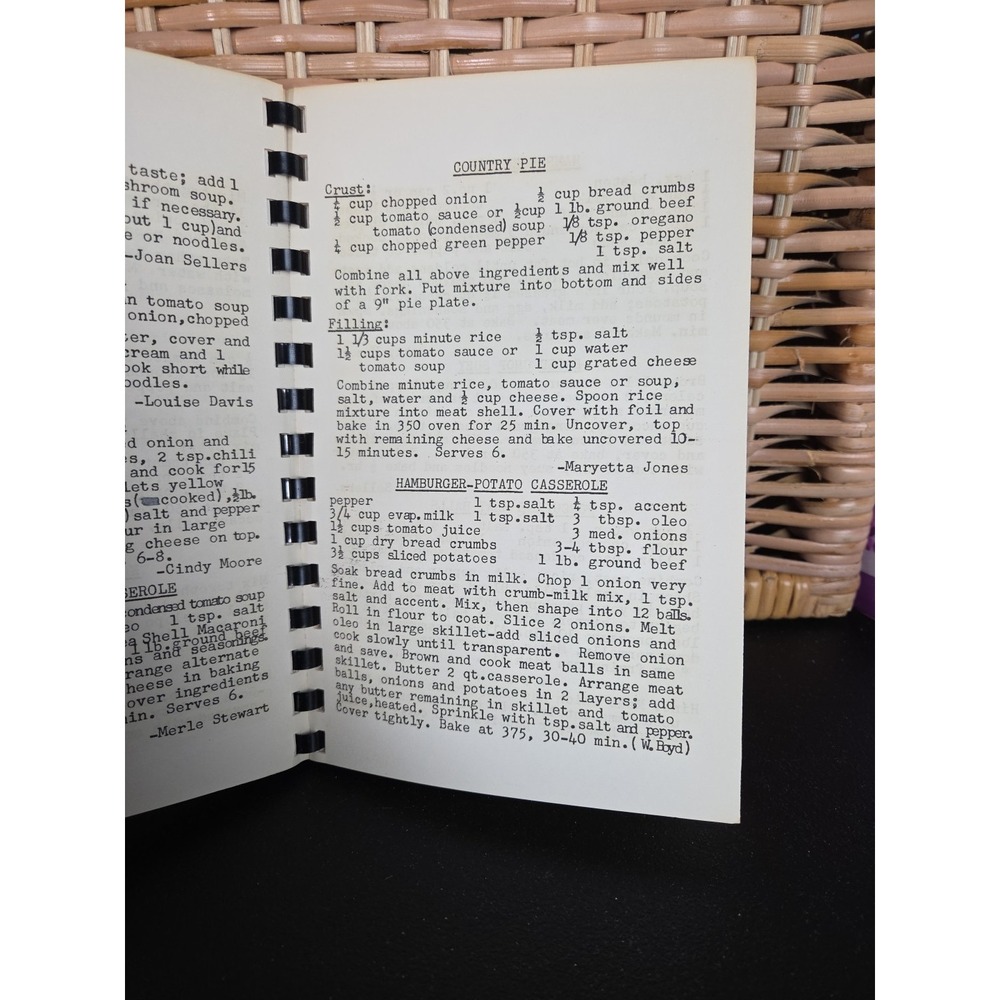 taste; add 1
shroom soup.
if necessary.
out 1 cup)and
e or noodles.
-Joan Sellers
n tomato soup
onion,chopped
er, cover and
cream and 1
ook short while
oodles.
-Louise Davis
d onion and
es, 2 tsp.chili
and cook for15
Lets yellow
cooked),½lb.
)salt and pepper
ur in large
g cheese on top.
6-8.
-Cindy Moore
SEROLE
condensed tomato soup
eo 1 tsp. salt
a Shell Macaroni
1 lb.ground beef
ns and seasonings.
range alternate
heese in baking
over ingredients
in. Serves 6.
-Merle Stewart
COUNTRY PIE
Crust:
¼ cup chopped onion ½ cup bread crumbs
½ cup tomato sauce or ½cup 1 lb. ground beef
tomato (condensed) soup 1/8 tsp. oregano
¼ cup chopped green pepper 1/8 tsp. pepper
1 tsp. salt
Combine all above ingredients and mix well
with fork. Put mixture into bottom and sides
of a 9" pie plate.
Filling:
1 1/3 cups minute rice ½ tsp. salt
1½ cups tomato sauce or 1 cup water
tomato soup 1 cup grated cheese
Combine minute rice, tomato sauce or soup,
salt, water and ½ cup cheese. Spoon rice
mixture into meat shell. Cover with foil and
bake in 350 oven for 25 min. Uncover, top
with remaining cheese and bake uncovered 10-
15 minutes. Serves 6.
-Maryetta Jones
HAMBURGER-POTATO CASSEROLE
pepper 1 tsp.salt ¼ tsp. accent
3/4 cup evap.milk 1 tsp.salt 3 tbsp. oleo
1½ cups tomato juice 3 med. onions
1 cup dry bread crumbs 3-4 tbsp. flour
3½ cups sliced potatoes 1 lb. ground beef
Soak bread crumbs in milk. Chop 1 onion very
fine. Add to meat with crumb-milk mix, 1 tsp.
salt and accent. Mix, then shape into 12 balls.
Roll in flour to coat. Slice 2 onions. Melt
oleo in large skillet-add sliced onions and
cook slowly until transparent. Remove onion
and save. Brown and cook meat balls in same
skillet. Butter 2 qt.casserole. Arrange meat
balls, onions and potatoes in 2 layers; add
any butter remaining in skillet and tomato
juice,heated. Sprinkle with tsp.salt and pepper.
Cover tightly. Bake at 375, 30-40 min.( W. Boyd)